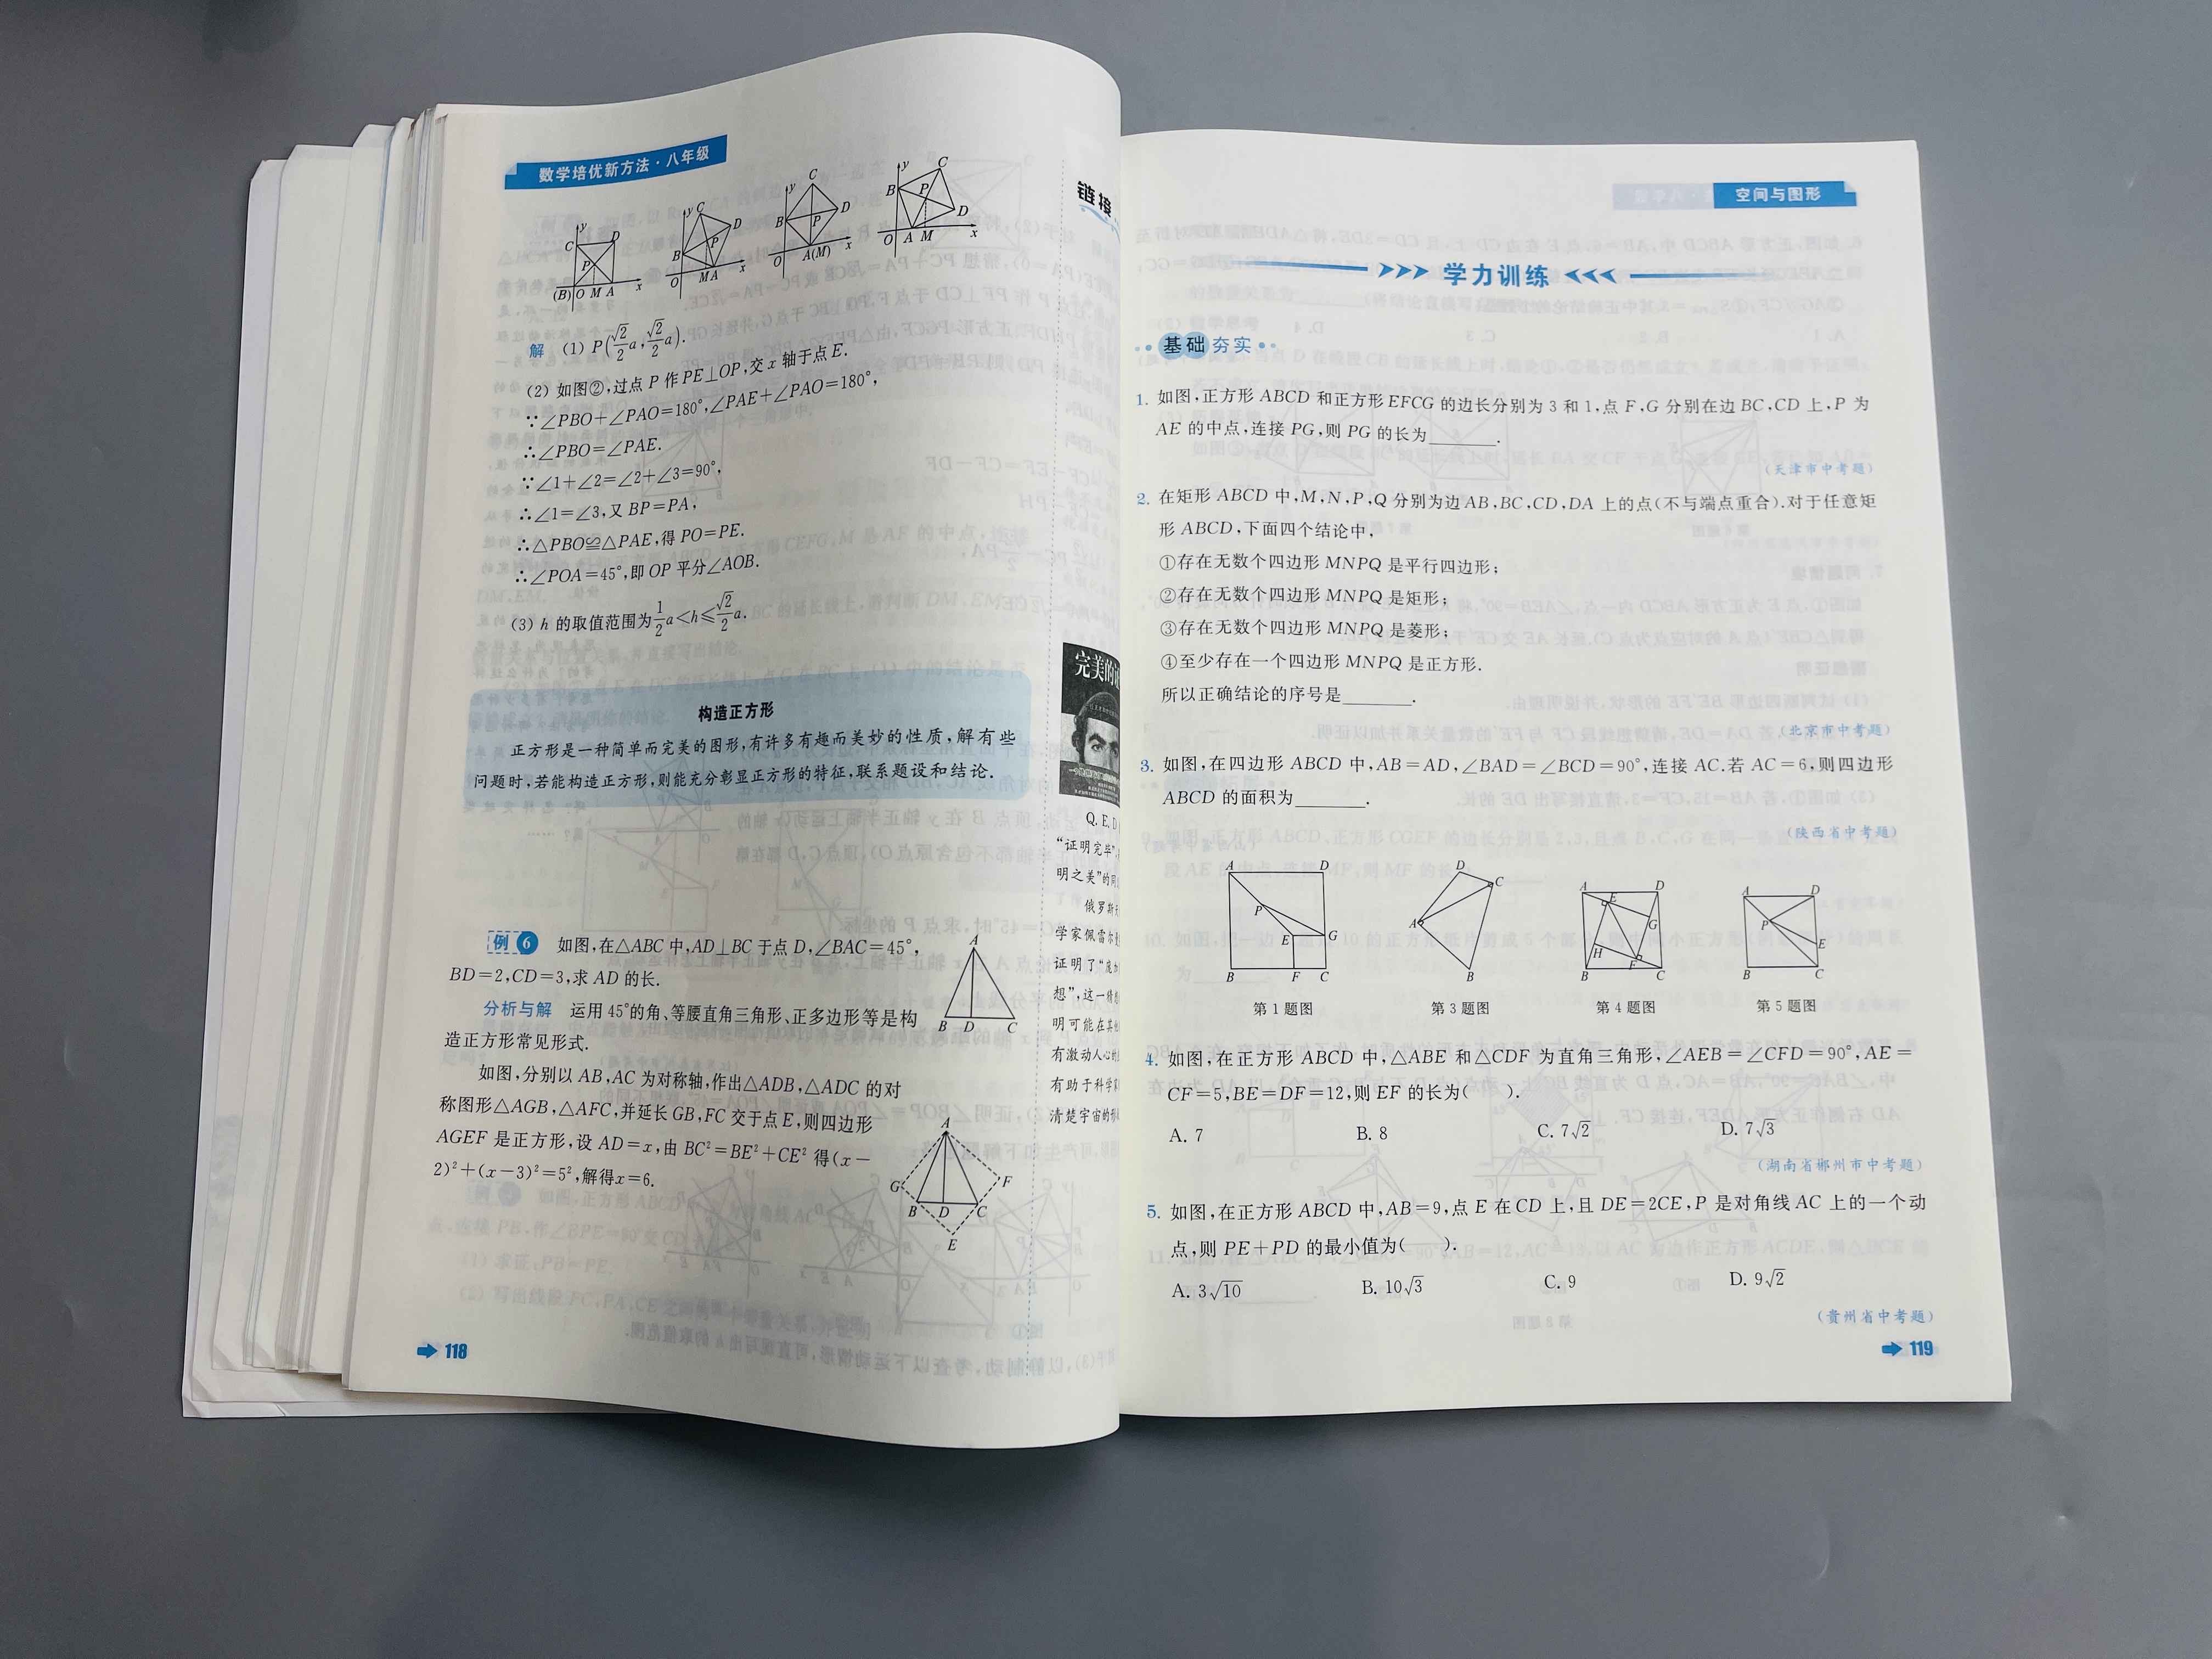 数学培优新方法·八年级
y
C D
P
(B) O M A x
y
C
D
B P
O M A x
y
C
B D
P
O A(M) x
y C
B P
D
O A M x
解 (1) P(√2/2 a, √2/2 a).
(2) 如图②,过点 P 作 PE⊥OP,交 x 轴于点 E.
∵∠PBO+∠PAO=180°,∠PAE+∠PAO=180°,
∴∠PBO=∠PAE.
∵∠1+∠2=∠2+∠3=90°,
∴∠1=∠3,又 BP=PA,
∴△PBO≌△PAE,得 PO=PE.
∴∠POA=45°,即 OP 平分∠AOB.
(3) h 的取值范围为 1/2 a<h≤√2/2 a.
构造正方形
正方形是一种简单而完美的图形,有许多有趣而美妙的性质,解有些
问题时,若能构造正方形,则能充分彰显正方形的特征,联系题设和结论.
例 6 如图,在△ABC 中,AD⊥BC 于点 D,∠BAC=45°,
BD=2,CD=3,求 AD 的长.
分析与解 运用 45°的角、等腰直角三角形、正多边形等是构
造正方形常见形式.
如图,分别以 AB,AC 为对称轴,作出△ADB,△ADC 的对
称图形△AGB,△AFC,并延长 GB,FC 交于点 E,则四边形
AGEF 是正方形,设 AD=x,由 BC²=BE²+CE² 得(x−
2)²+(x−3)²=5²,解得x=6.
A
B D C
A
G F
B D C
E
118
链接
完美的
Q. E. D
“证明完毕”,
明之美”的同
俄罗斯
学家佩雷尔
证明了“庞加
想”,这一
明可能在其他
有激动人心的
有助于科学
清楚宇宙的
空间与图形
学力训练
基础夯实
1. 如图,正方形 ABCD 和正方形 EFCG 的边长分别为 3 和 1,点 F,G 分别在边 BC,CD 上,P 为
AE 的中点,连接 PG,则 PG 的长为________.
(天津市中考题)
2. 在矩形 ABCD 中,M,N,P,Q 分别为边 AB,BC,CD,DA 上的点(不与端点重合).对于任意矩
形 ABCD,下面四个结论中,
①存在无数个四边形 MNPQ 是平行四边形;
②存在无数个四边形 MNPQ 是矩形;
③存在无数个四边形 MNPQ 是菱形;
④至少存在一个四边形 MNPQ 是正方形.
所以正确结论的序号是________.
(北京市中考题)
3. 如图,在四边形 ABCD 中,AB=AD,∠BAD=∠BCD=90°,连接 AC.若 AC=6,则四边形
ABCD 的面积为________.
(陕西省中考题)
A D
P
E G
B F C
第 1 题图
D
C
A
B
第 3 题图
A D
E
G
H
F
B C
第 4 题图
A D
P
E
B C
第 5 题图
4. 如图,在正方形 ABCD 中,△ABE 和△CDF 为直角三角形,∠AEB=∠CFD=90°,AE=
CF=5,BE=DF=12,则 EF 的长为( ).
A. 7 B. 8 C. 7√2 D. 7√3
(湖南省郴州市中考题)
5. 如图,在正方形 ABCD 中,AB=9,点 E 在 CD 上,且 DE=2CE,P 是对角线 AC 上的一个动
点,则 PE+PD 的最小值为( ).
A. 3√10 B. 10√3 C. 9 D. 9√2
(贵州省中考题)
119